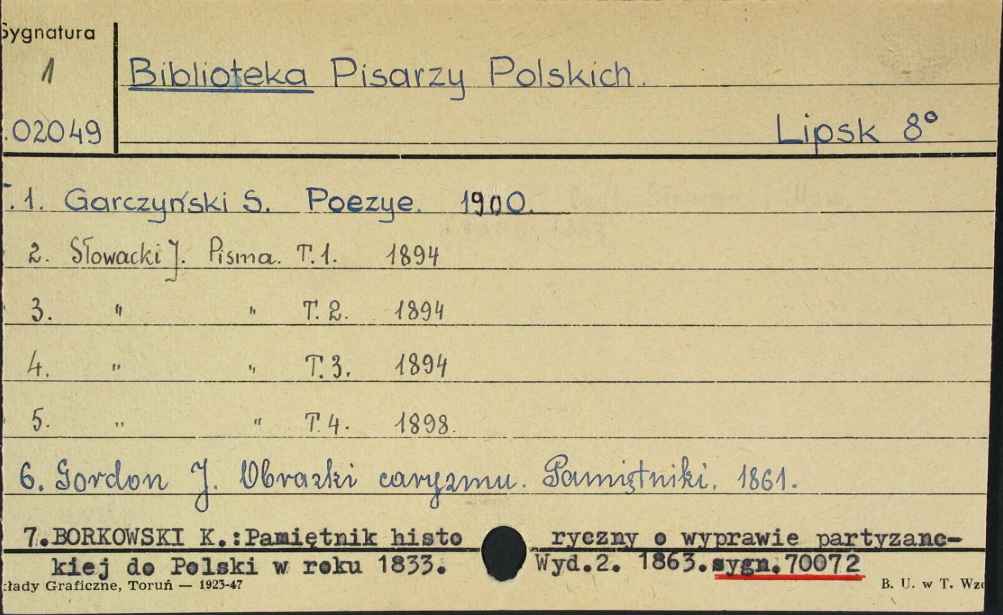 Sygnatura
1
Biblioteka Pisarzy Polskich.
02049
Lipsk 8°
T.1. Garczyński S. Poezye. 1900.
2. Słowacki J. Pisma. T.1. 1894
3. " " T.2. 1894
4. " " T.3. 1894
5. " " T.4. 1898.
6. Gordon J. Obrazki caryzmu. Pamiętniki. 1861.
7.BORKOWSKI K.:Pamiętnik histo ryczny o wyprawie partyzanc-
kiej do Polski w roku 1833. Wyd.2. 1863.sygn.70072
kłady Graficzne, Toruń — 1923-47 B. U. w T. Wzó